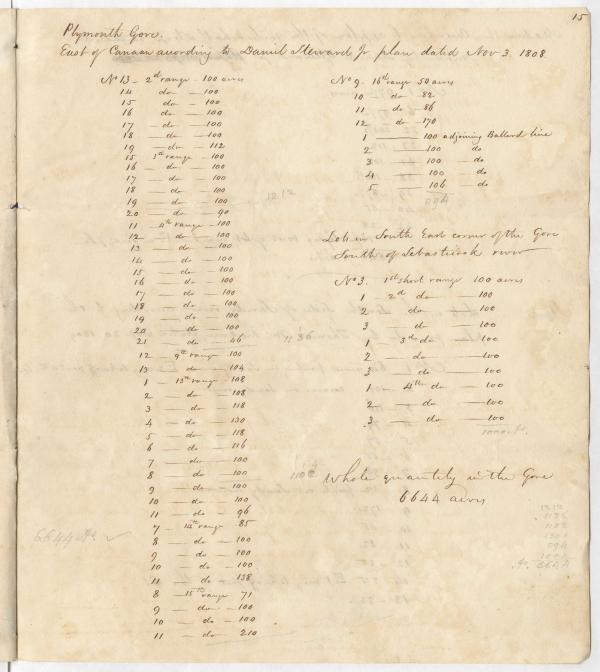 15
Plymouth Gore.
East of Canaan according to Daniel Steward Jr plan dated Nov 3. 1808
No 13 - 2d range - 100 acres
14 - do - 100
15 - do - 100
16 - do - 100
17 - do - 100
18 - do - 100
19 - do - 112
15 3rd range - 100
16 - do - 100
17 - do - 100
18 - do - 100
19 - do - 100
20 - do - 90
1212
11 - 4th range - 100
12 - do - 100
13 - do - 100
14 - do - 100
15 - do - 100
16 - do - 100
17 - do - 100
18 - do - 100
19 - do - 100
20 - do - 100
21 - do - 46
1136
12 - 9th range - 100
13 - do - 104
1 - 13th range - 108
2 - do - 108
3 - do - 118
4 - do - 130
5 - do - 118
6 - do - 116
7 - do - 100
8 - do - 100
9 - do - 100
10 - do - 100
11 - do - 96
7 - 14th range 85
8 - do - 100
9 - do - 100
10 - do - 100
11 - do - 138
8 - 15th range 71
9 - do - 100
10 - do - 100
11 - do - 210
6644 As
No 9 - 16th range 50 acres
10 - do - 82
11 - do - 86
12 - do - 170
1 - 100 adjoining Ballard line
2 - 100 do
3 - 100 - do
4 - 100 do
5 - 106 - do
894
Lots in South East corner of the Gore
South of Sebasticook river
No 3. 1st short range 100 acres
1 - 2d do - 100
2 - do - 100
3 - do - 100
1 - 3rd do - 100
2 - do - 100
3 - do - 100
1 - 4th do - 100
2 - do - 100
3 - do - 100
Whole quantity in the Gore
6644 acres
1212
1136
894
6644